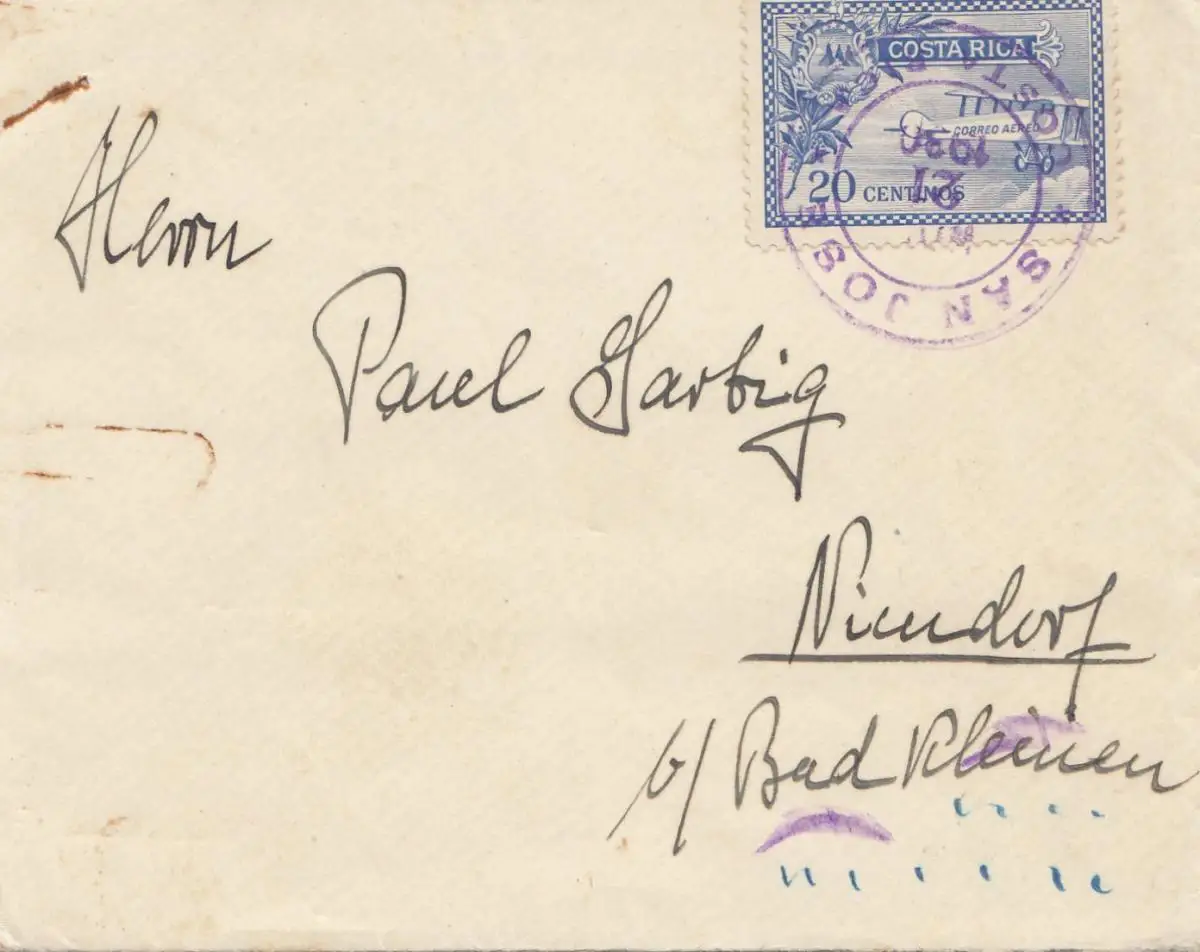 COSTA RICA
CORREO AEREO
20 CENTIMOS
SAN JOSE
21
Herrn
Paul Harbig
Niendorf
b/ Bad Kleinen